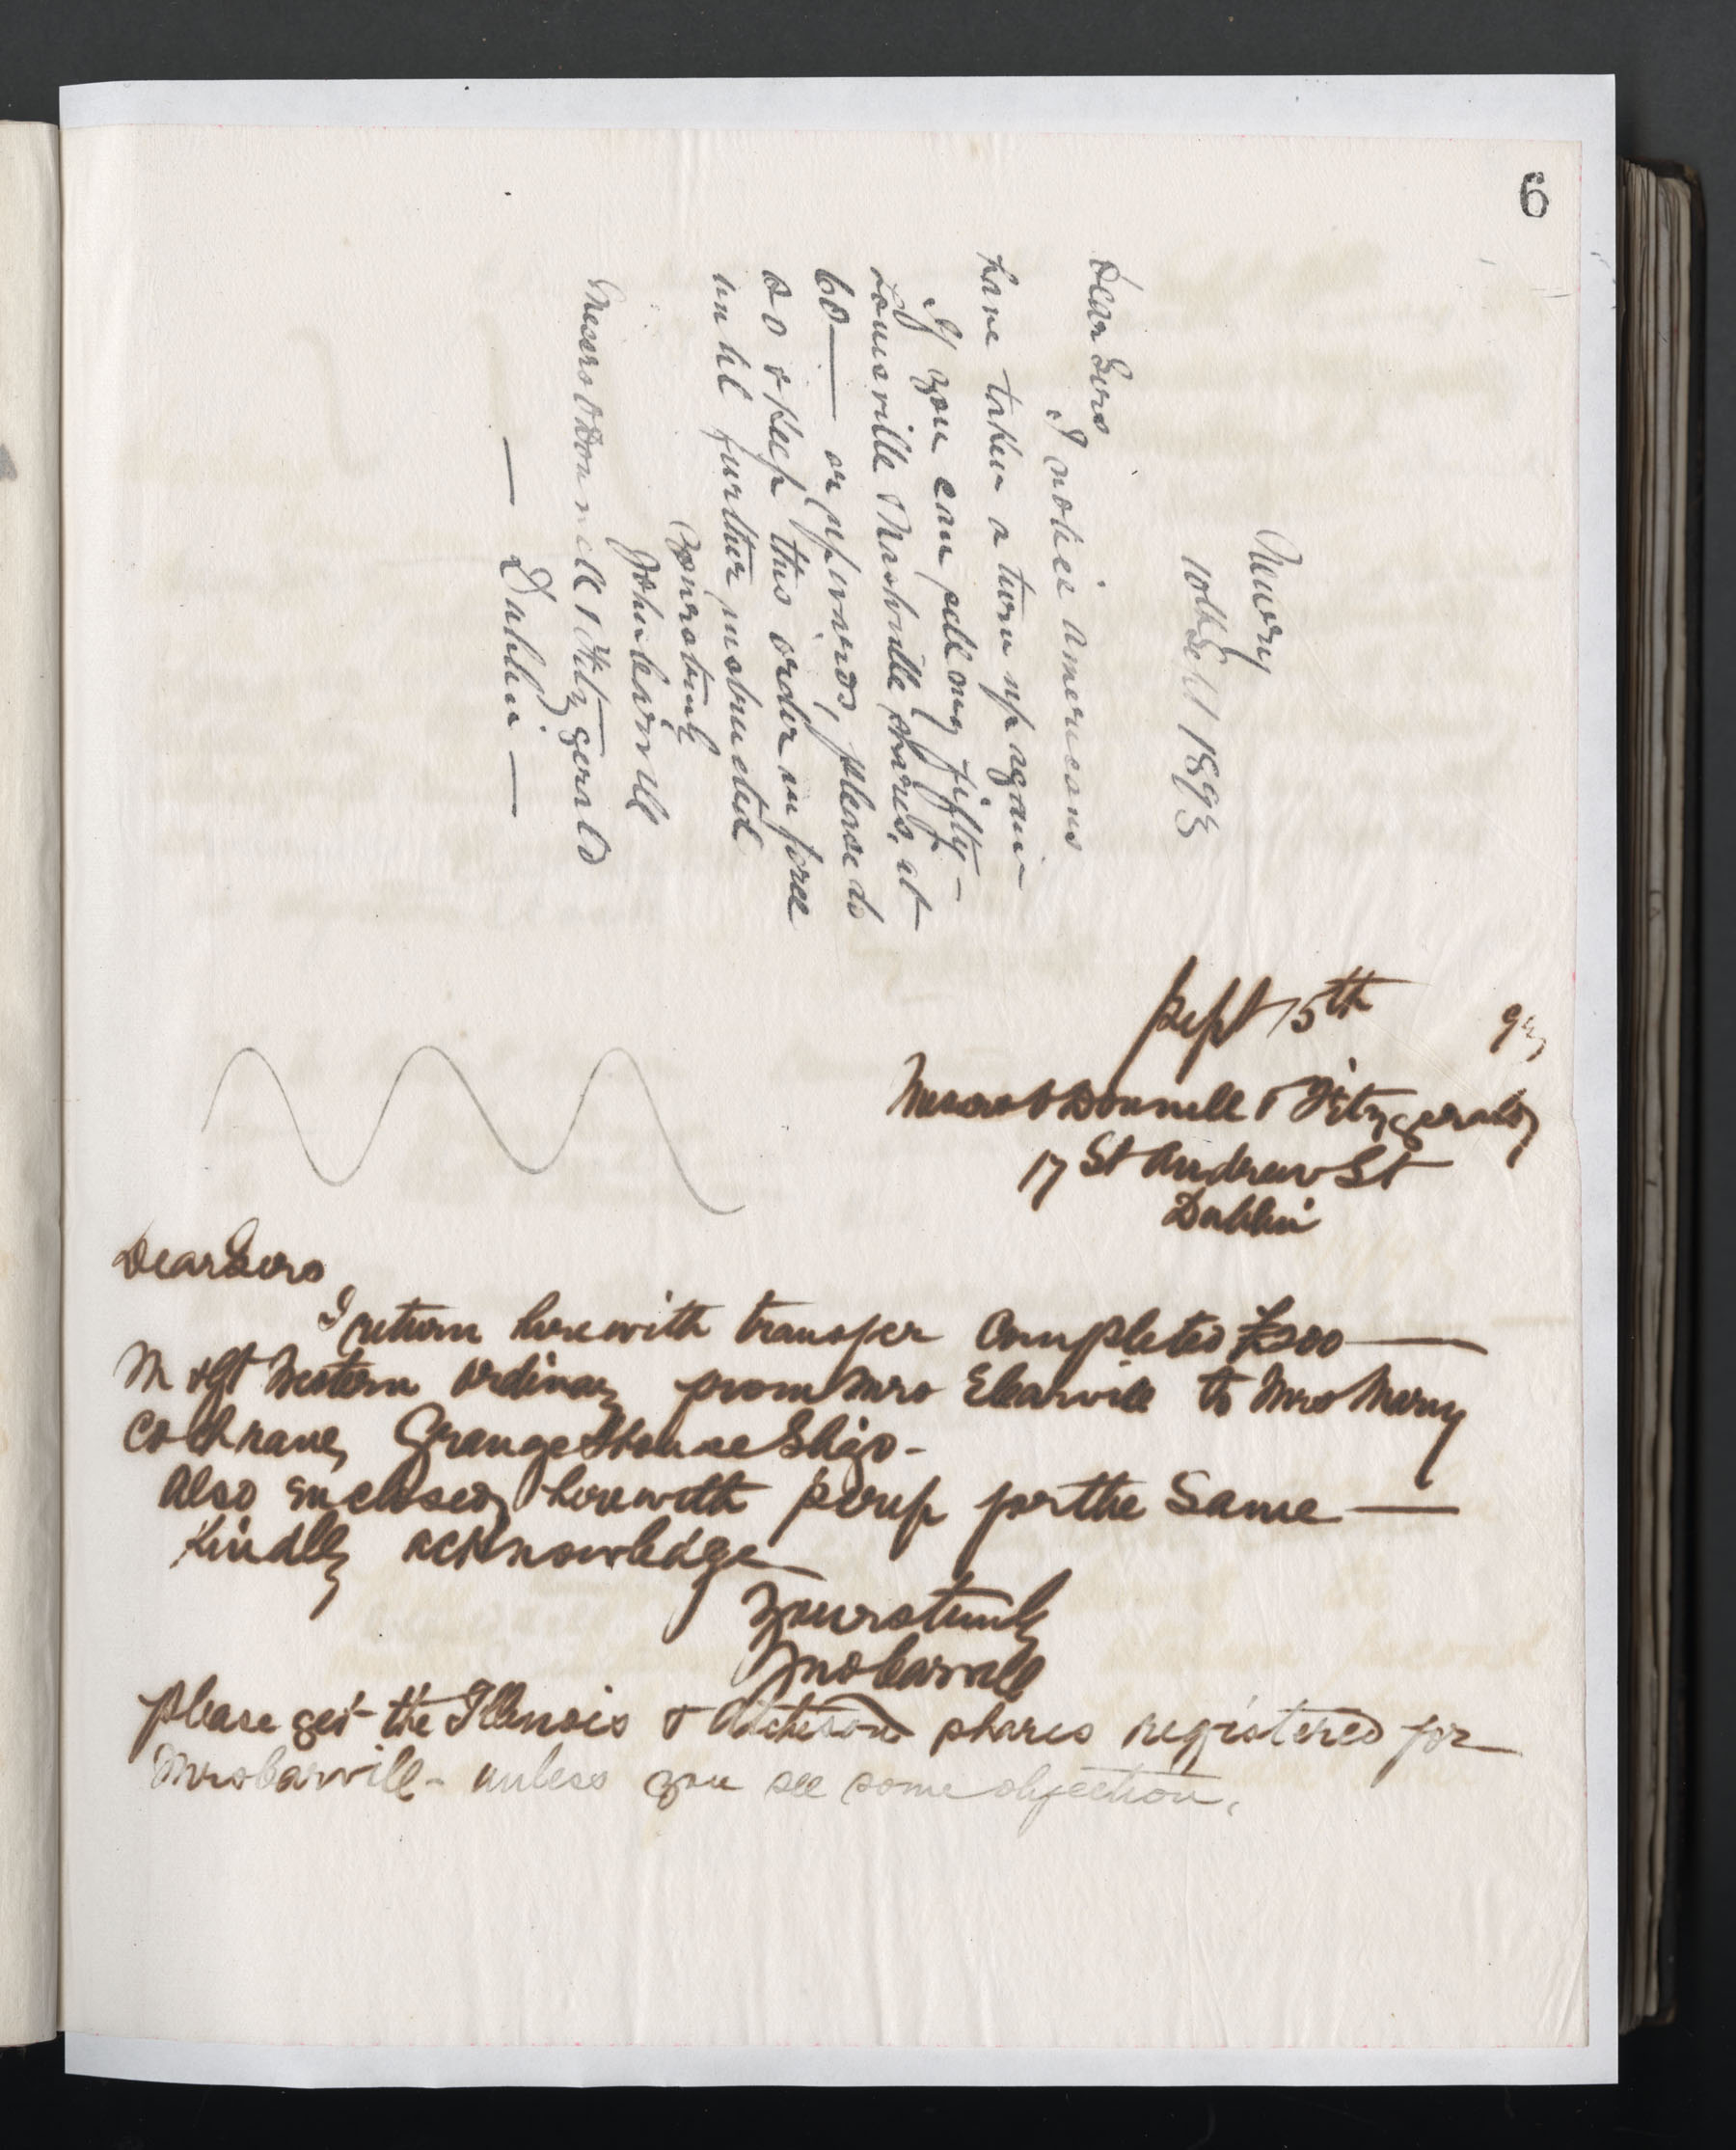 6
Newry
10th Sept 1893
Dear Sirs
I notice americans
have taken a turn up again
If you can sell my fifty -
Louisville Nashville shares, at
60 — or upwards, please do
so & keep this order in force
until further instructed
Yours truly
John Carvill
Messrs O'Donnell & Fitzgerald
— Dublin —
Sept 15th 93
Messrs O'Donnell & Fitzgerald
17 St Andrew St
Dublin
Dear Sirs
I return herewith transfer Completed £200 —
M & Gt Western Ordinary from Mrs E Carvill to Mrs Mary
Cochrane, Grange House Sligo -
Also enclosed, herewith scrip for the Same —
Kindly acknowledge
Yours truly
Jno Carvill
Please get the Illinois & Atcheson shares registered for
Mrs Carvill - unless you see some objection.